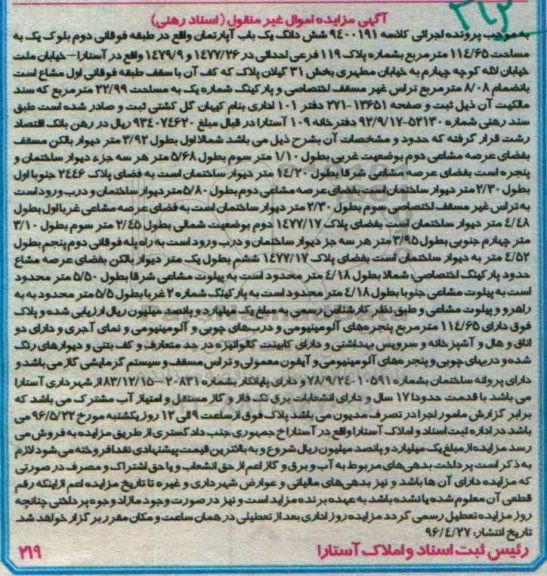 ۳۱۲
آگهی مزایده اموال غیر منقول (اسناد رهنی)
به موجب پرونده اجرائی کلاسه ۹۴۰۰۱۹۱ شش دانگ یک باب آپارتمان واقع در طبقه فوقانی دوم بلوک یک به
مساحت ۱۱۴/۶۵ متر مربع بشماره پلاک ۱۱۹ فرعی احداثی در ۱۴۷۷/۲۶ و ۱۴۷۹/۹ واقع در آستارا – خیابان ملت
خیابان لاله کوچه چهارم به خیابان مطهری بخش ۳۱ گیلان پلاک که کف آن با سقف طبقه فوقانی اول مشاع است
بانضمام ۸/۰۸ متر مربع تراس غیر مسقف اختصاصی و پارکینگ شماره یک به مساحت ۲۲/۹۹ متر مربع که سند
مالکیت آن ذیل ثبت و صفحه ۱۳۶۵۱-۲۷۱ دفتر ۱۰۱ اداری بنام کیهان گل کشتی ثبت و صادر شده است طبق
سند رهنی شماره ۵۲۱۳۰-۹۲/۹/۱۷ دفترخانه ۱۰۹ آستارا در قبال مبلغ ۹۳۴۰۷۴۶۲۰ ریال در رهن بانک اقتصاد
رشت قرار گرفته که حدود و مشخصات آن بشرح ذیل می باشد شمالا اول بطول ۳/۹۲ متر دیوار بالکن مسقف
بفضای عرصه مشاعی دوم بوضعیت غربی بطول ۱/۱۰ متر سوم بطول ۵/۶۸ متر هر سه جزء دیوار ساختمان و
پنجره است بفضای عرصه مشاعی شرقا بطول ۱۴/۲۰ متر دیوار ساختمان است به فضای پلاک ۲۴۴۶ جنوبا اول
بطول ۲/۳۰ متر دیوار ساختمان است بفضای عرصه مشاعی دوم بطول ۵/۸۰ متر دیوار ساختمان و درب ورود است
به تراس غیر مسقف اختصاصی سوم بطول ۲/۳۰ متر دیوار ساختمان است به فضای عرصه مشاعی غربا اول بطول
۴/۴۸ متر دیوار ساختمان است بفضای پلاک ۱۴۷۷/۱۷ دوم بوضعیت شمالی بطول ۲/۴۵ متر سوم بطول ۳/۱۰
متر چهارم جنوبی بطول ۳/۹۵ متر هر سه جز دیوار ساختمان و درب ورود است به راه پله فوقانی دوم پنجم بطول
۴/۵۲ متر به دیوار ساختمان است بفضای پلاک ۱۴۷۷/۱۷ ششم بطول یک متر دیوار بالکن بفضای عرصه مشاع
حدود پارکینگ اختصاصی: شمالا بطول ۴/۱۸ متر محدود است به پیلوت مشاعی شرقا بطول ۵/۵۰ متر محدود
است به پیلوت مشاعی جنوبا بطول ۴/۱۸ متر محدود است به پارکینگ شماره ۲ غربا بطول ۵/۵ متر محدود به به
راهرو و پیلوت مشاعی و طبق نظر کارشناس رسمی به مبلغ یک میلیارد و پانصد میلیون ریال ارزیابی شده و پلاک
فوق دارای ۱۱۴/۶۵ متر مربع پنجره های آلومینیومی و درب های چوبی و آلومینیومی و نمای آجری و دارای دو
اتاق و هال و آشپزخانه و سرویس بهداشتی و دارای کابینت گالوانیزه در حد متعارف و کف بتنی و دیوارهای رنگ
شده و دربهای چوبی و پنجره های آلومینیومی و آیفون معمولی و تراس مسقف و سیستم گرمایشی گاز می باشد و
دارای پروانه ساختمان بشماره ۱۰۵۹۱-۷۸/۹/۲۴ و دارای پایانکار بشماره ۲۰۸۳۱-۸۳/۱۲/۱۵ از شهرداری آستارا
می باشد با قدمت حدودا ۱۷ سال و دارای انشعابات برق تک فاز و گاز مستقل و امتیاز آب مشترک می باشد که
برابر گزارش مامور اجرا در تصرف مدیون می باشد پلاک فوق از ساعت ۹ الی ۱۲ روز یکشنبه مورخ ۹۶/۵/۲۲ می
باشد در اداره ثبت اسناد و املاک آستارا واقع در آستارا خ جمهوری جنب دادگستری از طریق مزایده به فروش می
رسد مزایده از مبلغ یک میلیارد و پانصد میلیون ریال شروع و به بالاترین قیمت پیشنهادی نقدا فروخته می شود لازم
به ذکر است پرداخت بدهی های مربوط به آب و برق و گاز اعم از حق انشعاب و یا حق اشتراک و مصرف در صورتی
که مزایده دارای آن ها باشد و نیز بدهی های مالیاتی و عوارض شهرداری و غیره تا تاریخ مزایده اعم از اینکه رقم
قطعی آن معلوم شده یا نشده باشد به عهده برنده مزاید است و نیز در صورت وجود مازاد وجوه پرداختی چنانچه
روز مزایده تعطیل رسمی گردد مزایده روز اداری بعد از تعطیلی در همان ساعت و مکان مقرر برگزار خواهد شد.
تاریخ انتشار: ۹۶/۴/۲۷
رئیس ثبت اسناد و املاک آستارا
۲۱۹